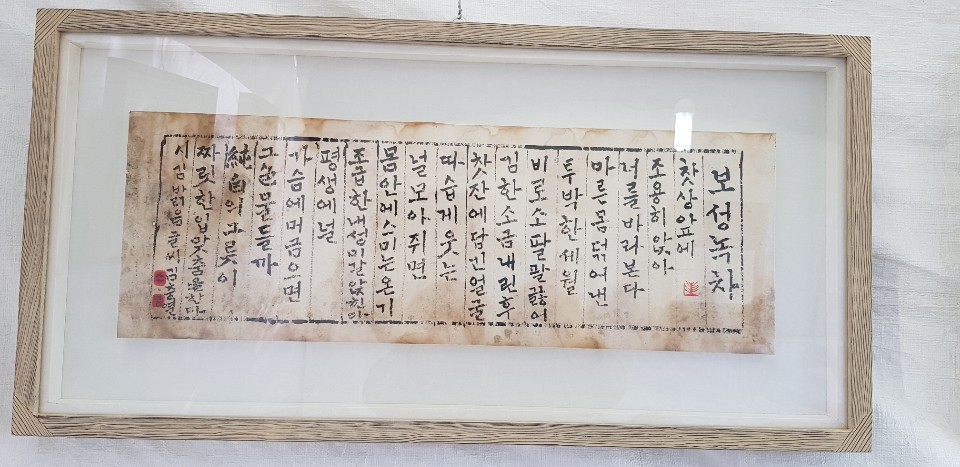 보성녹차
찻상앞에
조용히 앉아
너를 바라본다
마른 몸 덖여 낸
투박한 세월
비로소 팔팔 끓어
김 한소금 내린 후
찻잔에 담긴 얼굴
따습게 웃는
널 모아쥐면
몸안에 스미는 온기
조급한 내 성미 갈앉힌다
평생에 널
가슴에 머금으면
그 순물들까
純白의 다롯이
짜릿한 입맞춤을 한다
시 김밝음 글씨 김